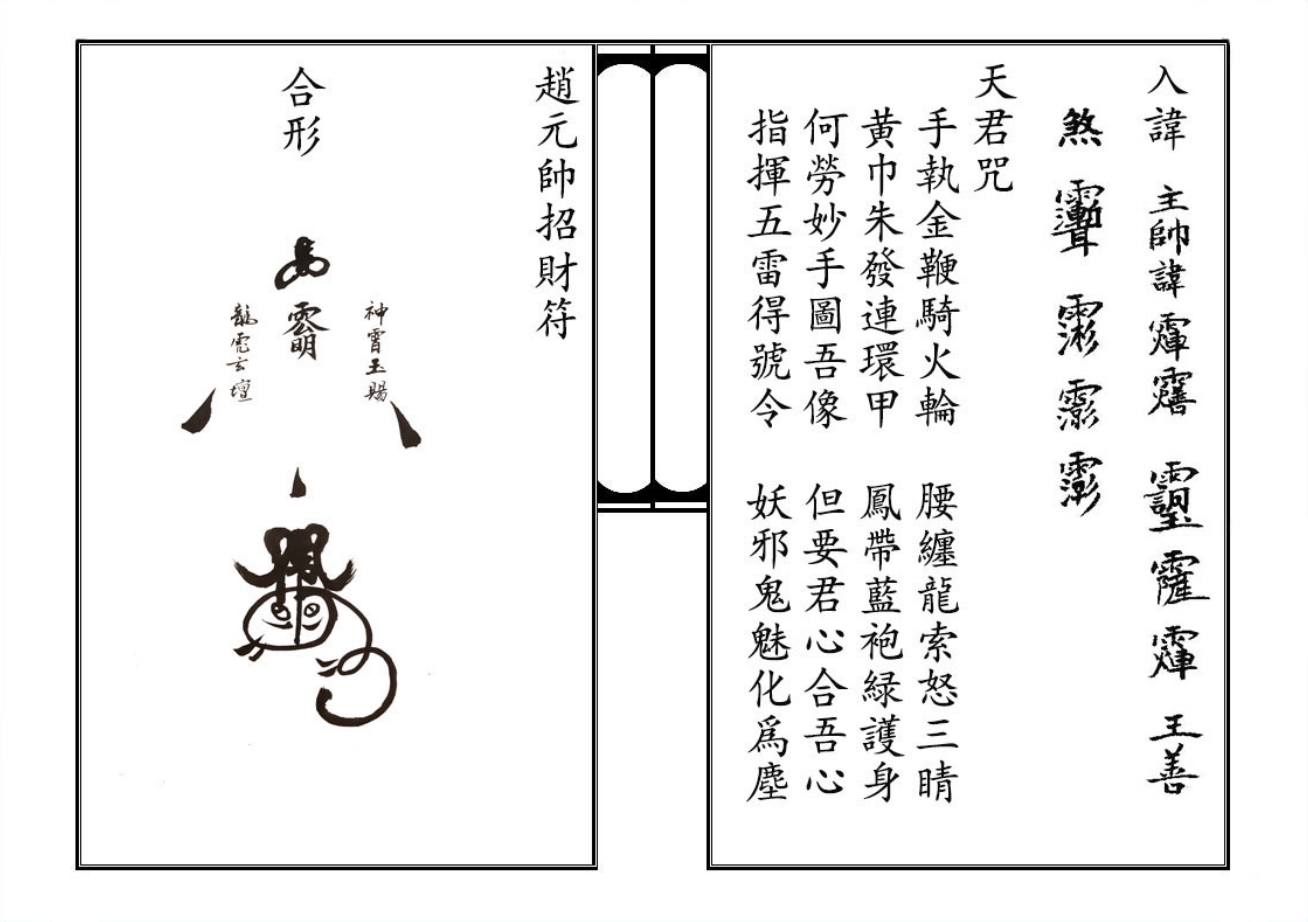 入諱 主帥諱 王善
煞
天君咒
手執金鞭騎火輪 腰纏龍索怒三睛
黃巾朱發連環甲 鳳帶藍袍綠護身
何勞妙手圖吾像 但要君心合吾心
指揮五雷得號令 妖邪鬼魅化爲塵
趙元帥招財符
合形
神霄玉賜
龍虎玄壇